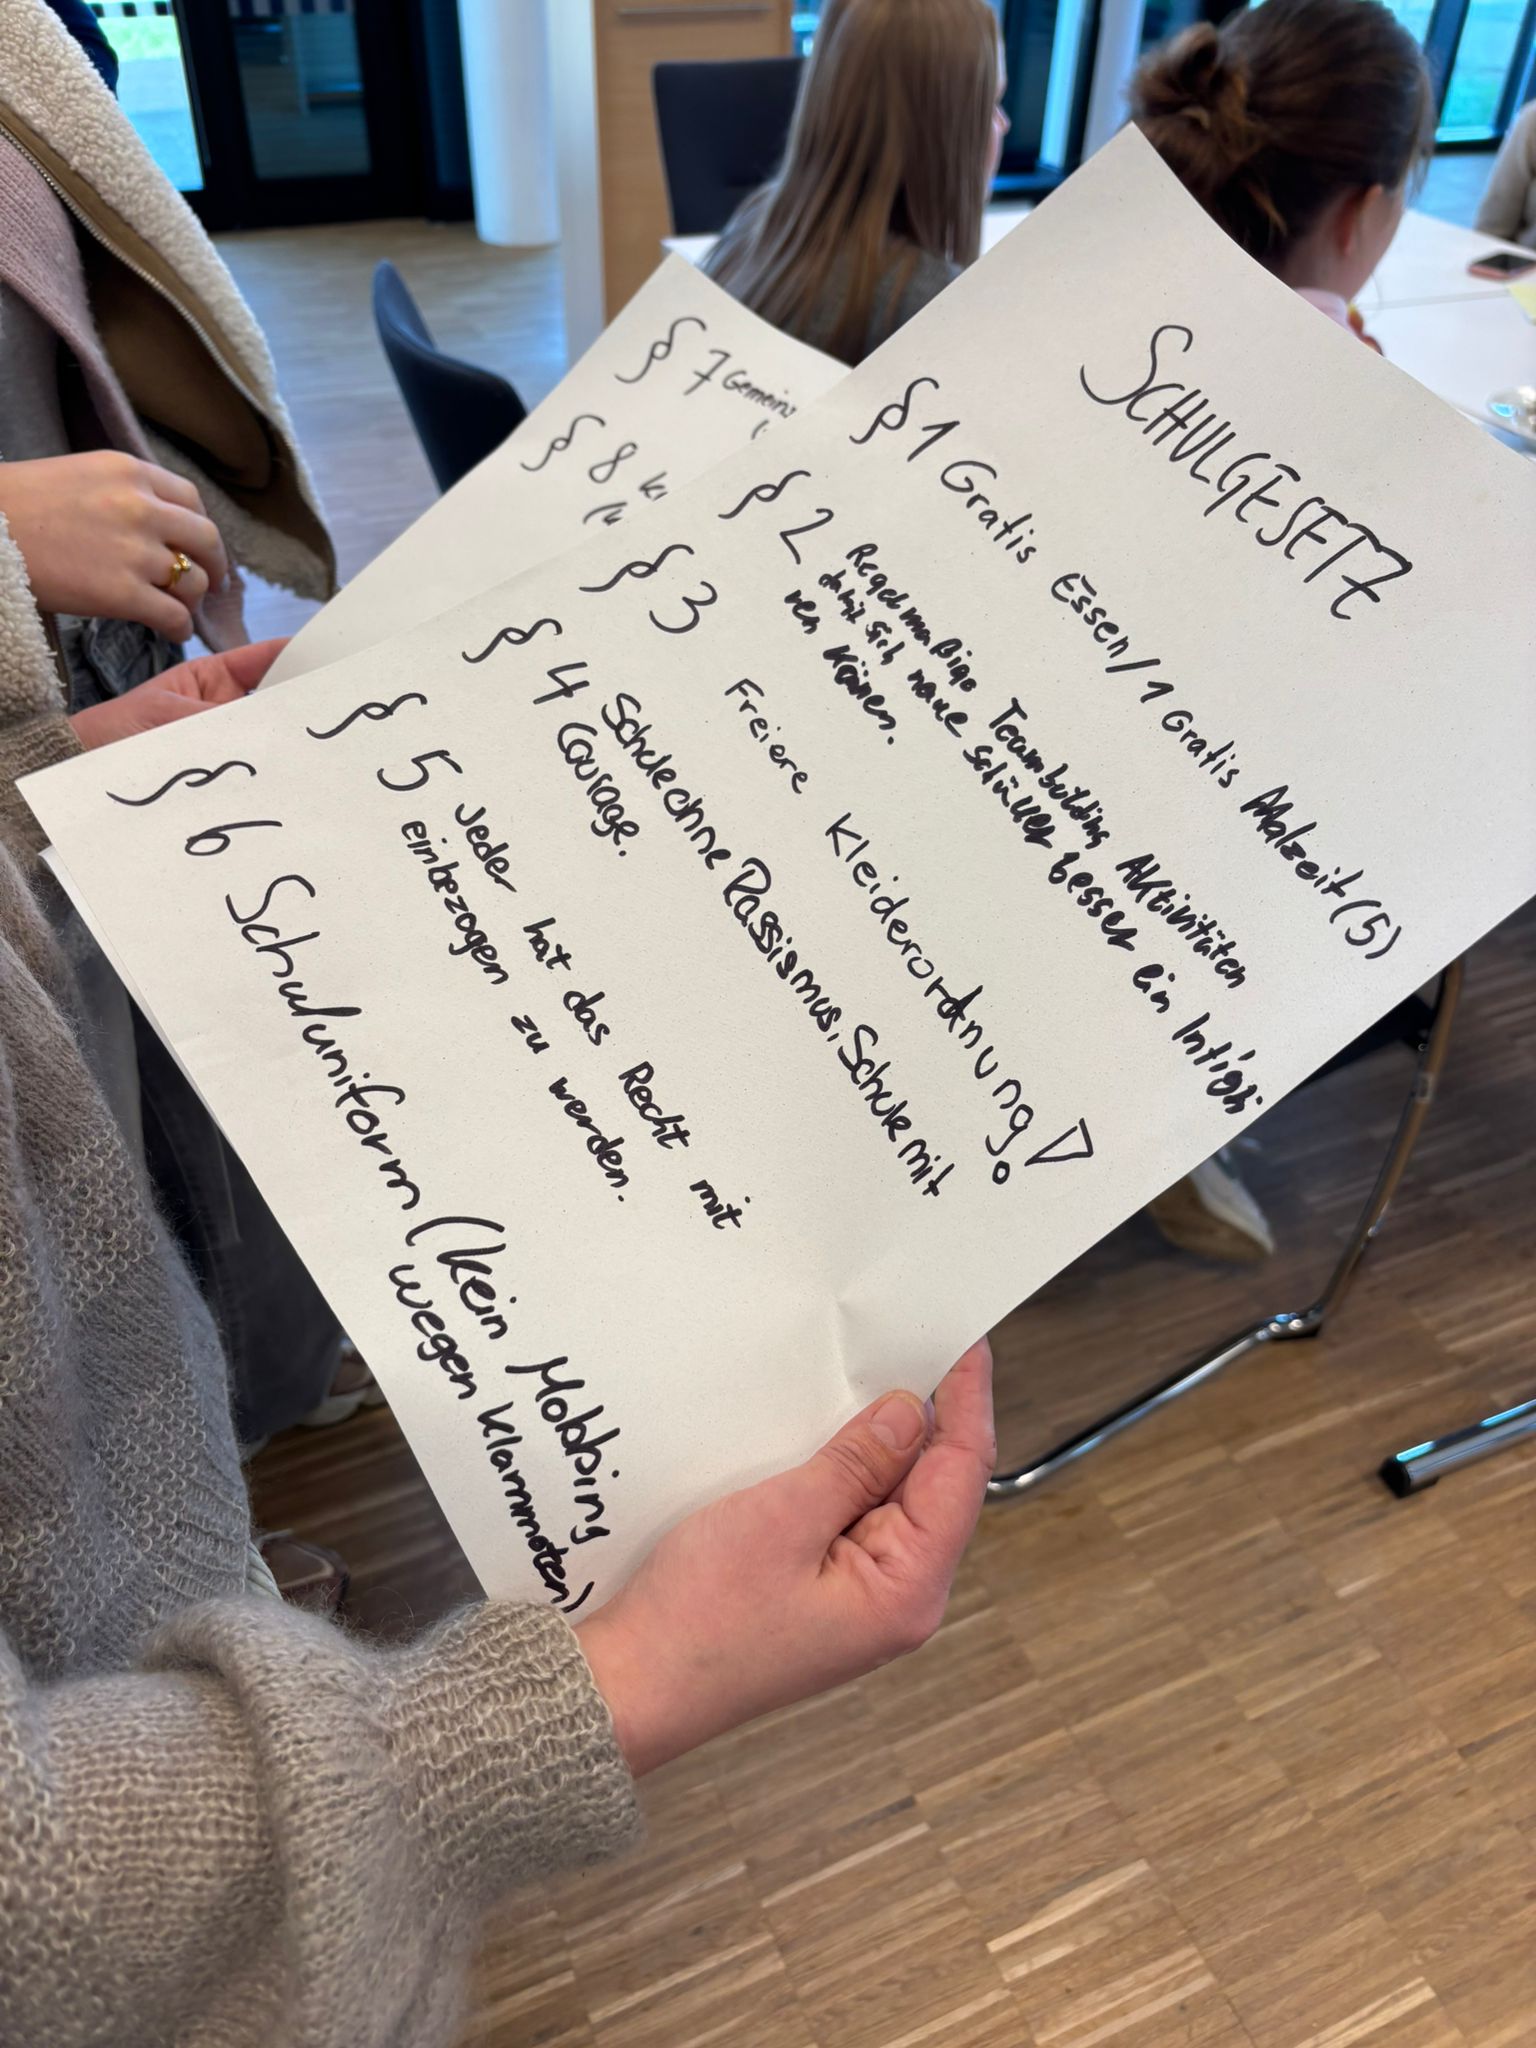 SCHULGESETZ
§ 1 Gratis Essen / 1 Gratis Malzeit (5)
§ 2 Regelmäßige Teambulding Aktivitäten
damit sich neue schüller besser ein
ren können.
§ 3 Freiere Kleiderordnung!
§ 4 Schule ohne Rassismus, Schule mit
Courage.
§ 5 Jeder hat das Recht mit
einbezogen zu werden.
§ 6 Schuluniform (kein Mobbing
wegen Klammoten)
§ 7
§ 8